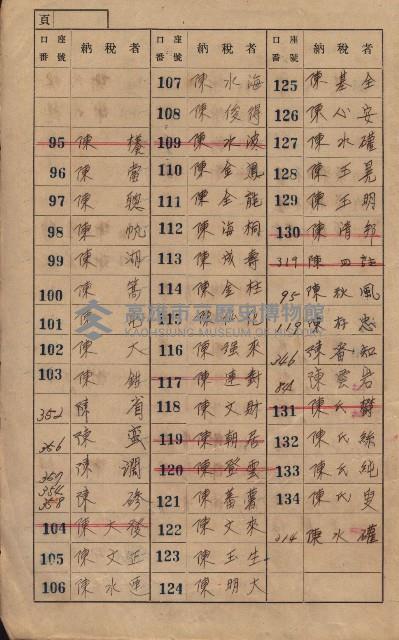 頁
口座番號 納稅者
95 陳樸
96 陳當
97 陳聰
98 陳帆
99 陳湖
100 陳篙
101 陳
102 陳大
103 陳
352 陳省
356 陳蛮
357 陳潤
354
358 陳
104 陳大後
105 陳文正
106 陳水連
口座番號 納稅者
107 陳水海
108 陳俊得
109 陳水波
110 陳金鳳
111 陳金能
112 陳海桐
113 陳成壽
114 陳金柱
115 陳
116 陳強來
117 陳連對
118 陳文財
119 陳朝居
120 陳登雲
121 陳蕃薯
122 陳文來
123 陳王生
124 陳明大
口座番號 納稅者
125 陳基全
126 陳心安
127 陳水確
128 陳王晃
129 陳王明
130 陳清郎
319 陳四
95 陳秋風
119 陳存忠
346 陳香知
陳登岩
131 陳氏
132 陳氏絲
133 陳氏純
134 陳氏叟
314 陳水確
高雄市立歷史博物館
KAOHSIUNG MUSEUM OF HISTORY